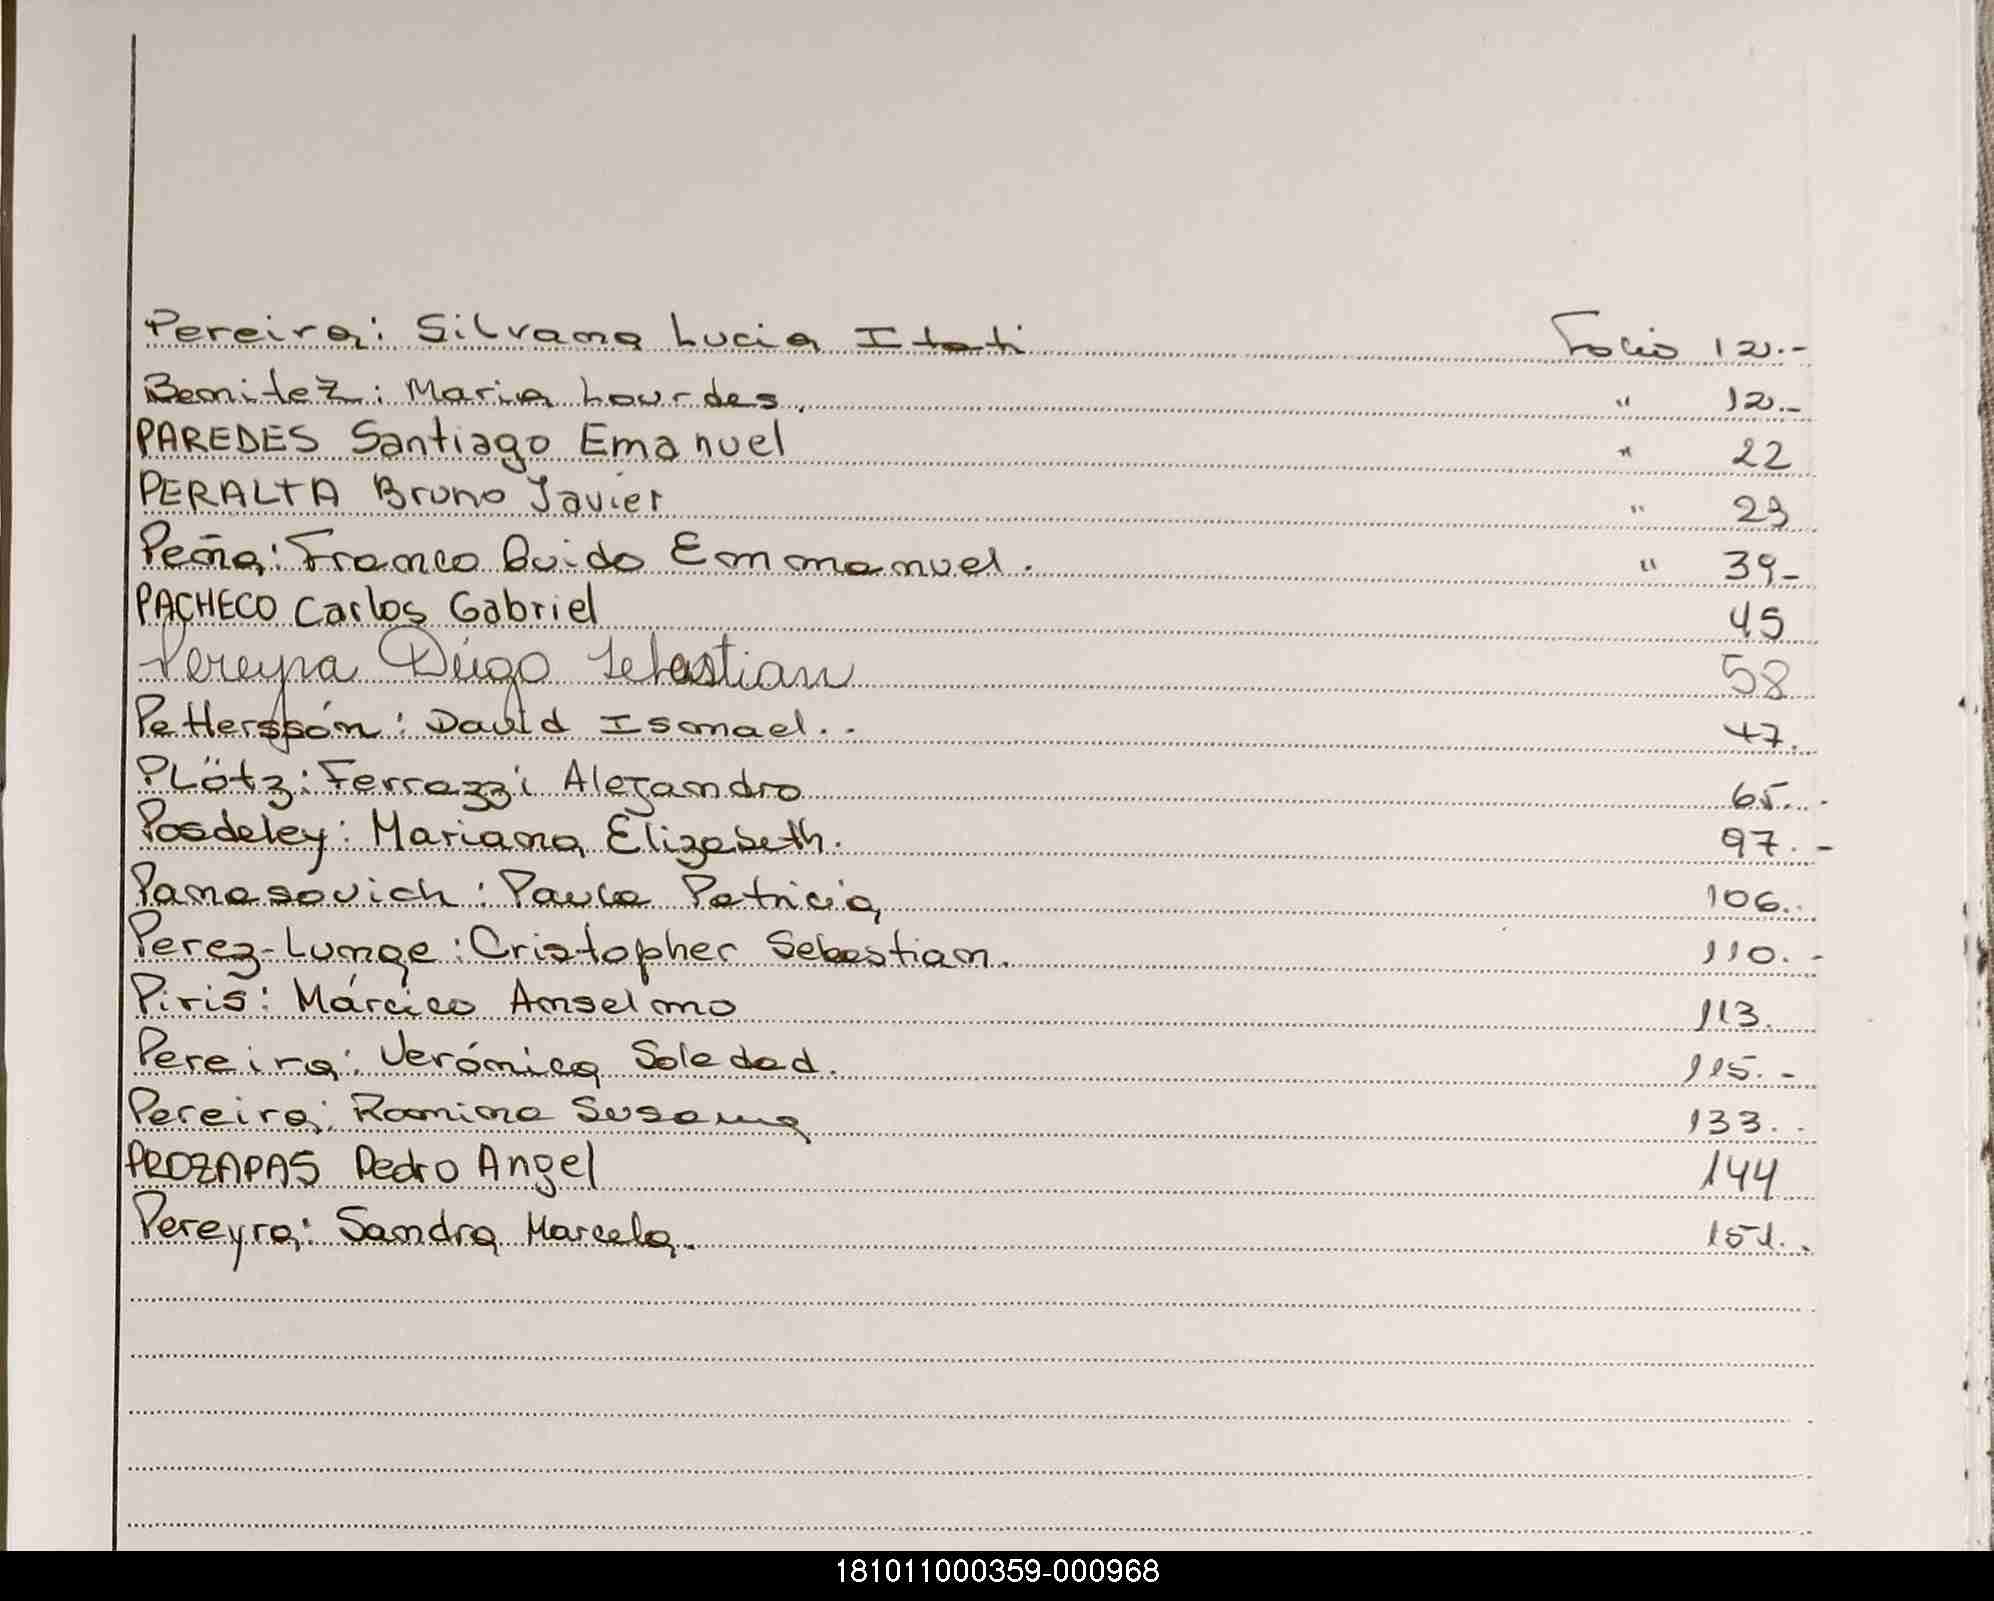 Pereira: Silvana Lucia Itati Folio 12.-
Benitez: Maria Lourdes. " 12.-
PAREDES Santiago Emanuel " 22
PERALTA Bruno Javier " 23
Peña: Franco Guido Emmanuel. " 39-
PACHECO Carlos Gabriel 45
Pereyra Diego Sebastian 58
Petterssón: David Ismael.. 47.
PLötz: Ferrazzi Alejandro 65..-
Posdeley: Mariana Elizabeth. 97.-
Panasovich: Paula Patricia 106..
Perez-Lunge: Cristopher Sebastian. 110.-
Piris: Márcico Anselmo 113.
Pereira: Verónica Soledad. 115.-
Pereira: Romina Susana 133..
PROZAPAS Pedro Angel 144
Pereyra: Sandra Marcela. 151..
181011000359-000968